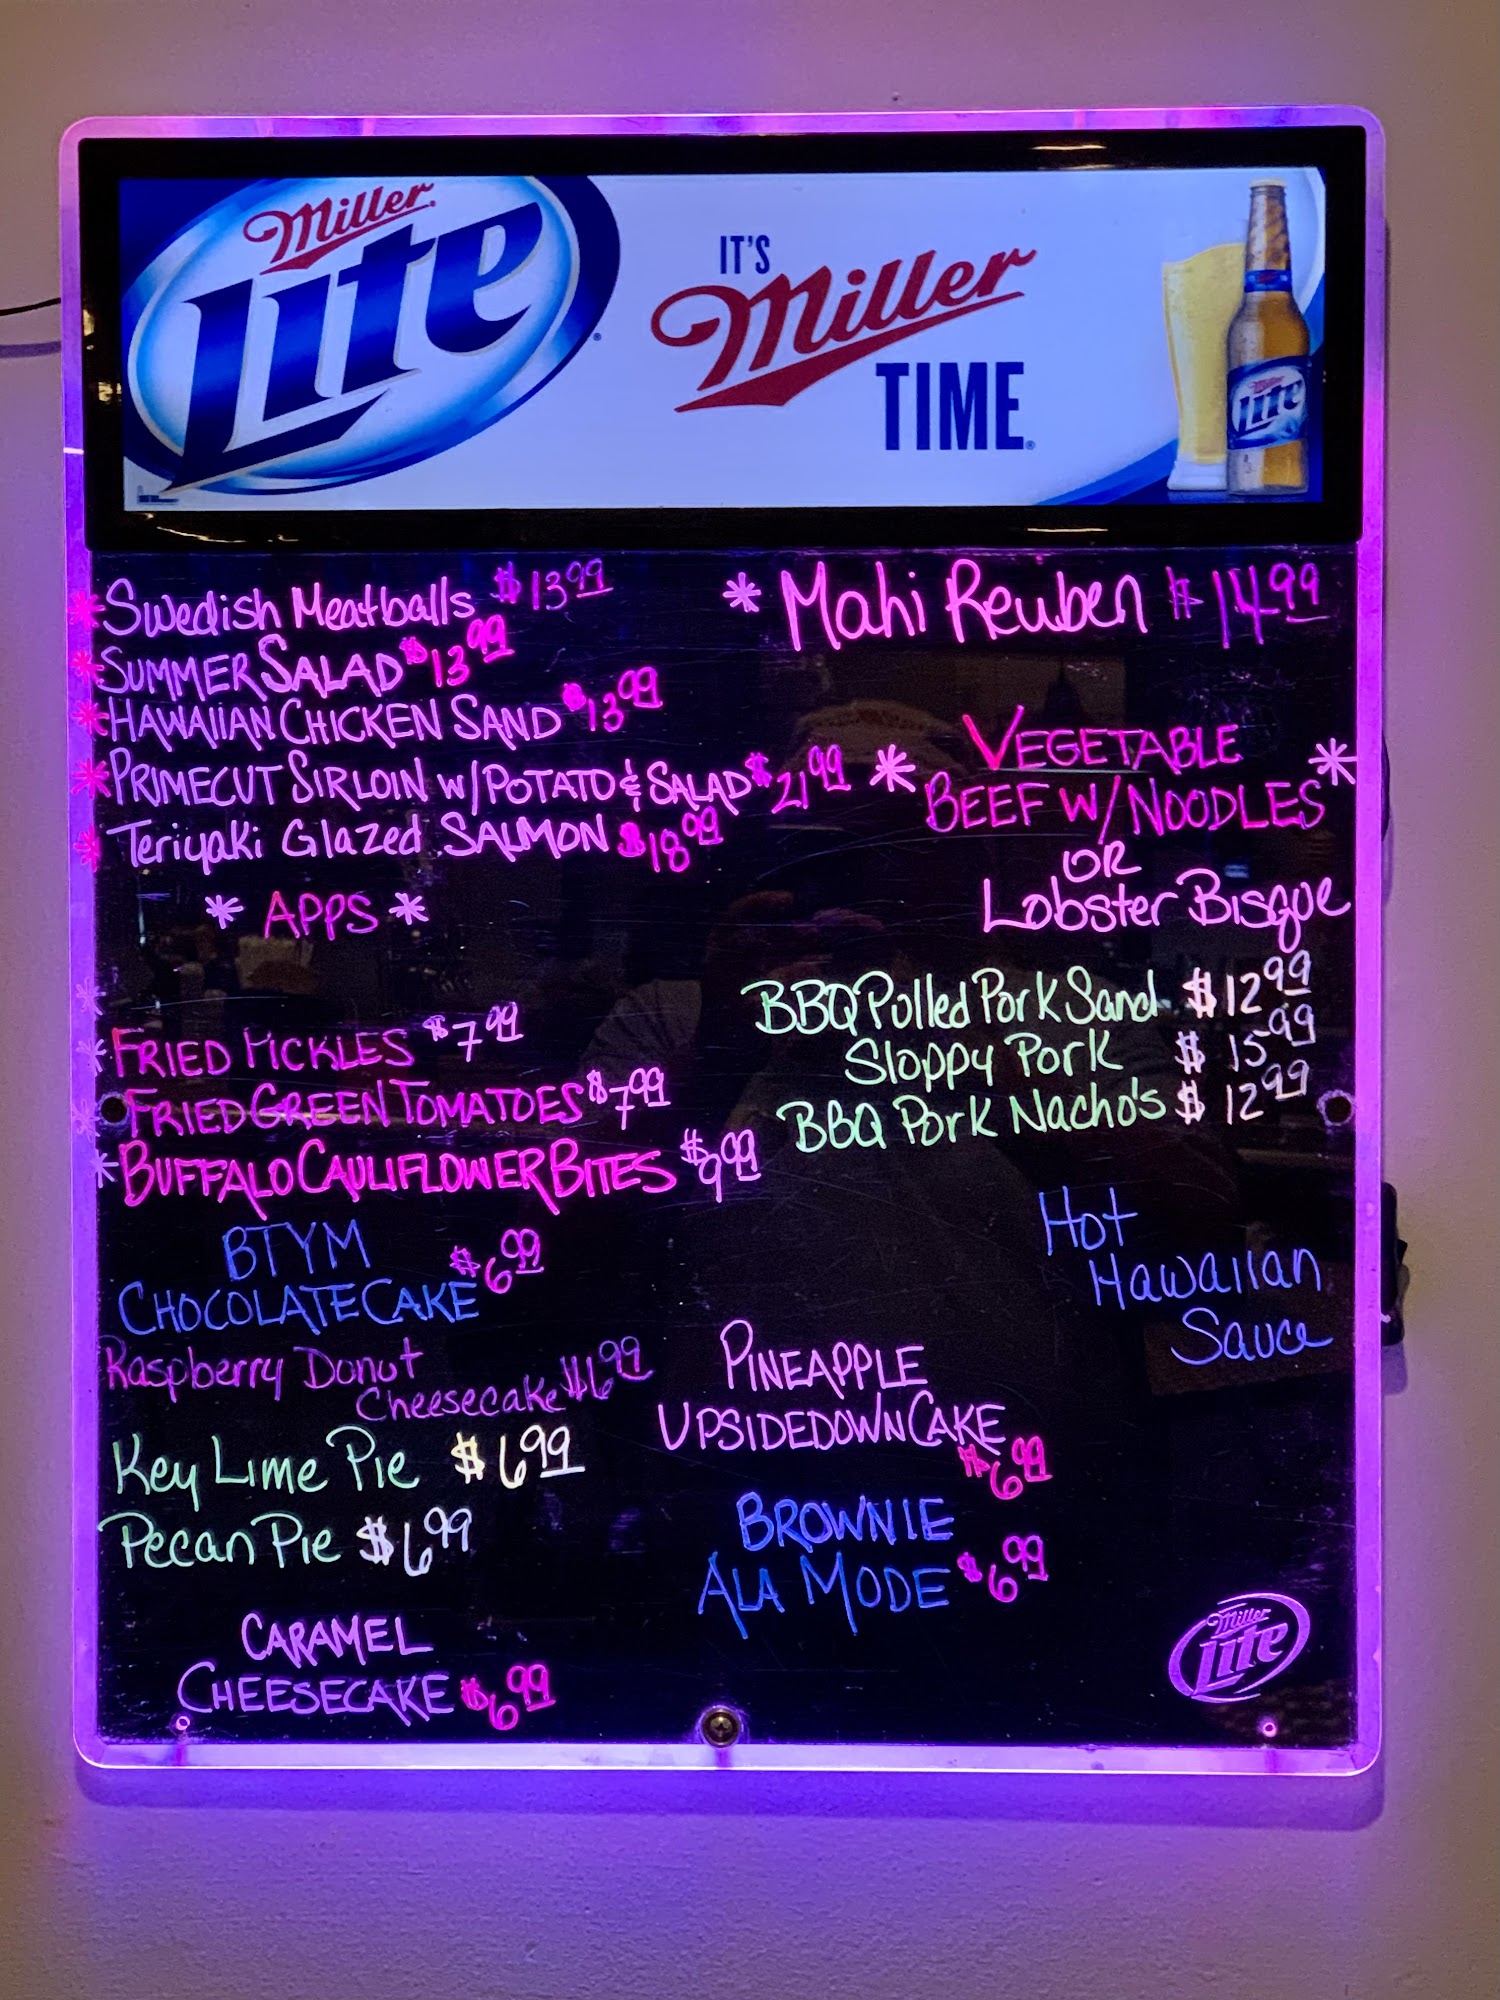 Miller
Lite
IT'S
Miller
TIME
Miller
Lite
* Swedish Meatballs $13.99
* SUMMER SALAD $13.99
* HAWAIIAN CHICKEN SAND $13.99
* PRIMECUT SIRLOIN W/POTATO & SALAD $21.99
* Teriyaki Glazed SALMON $18.99
* APPS *
* FRIED PICKLES $7.99
* FRIED GREEN TOMATOES $7.99
* BUFFALO CAULIFLOWER BITES $9.99
BTYM
CHOCOLATE CAKE $6.99
Raspberry Donut
Cheesecake $6.99
Key Lime Pie $6.99
Pecan Pie $6.99
CARAMEL
CHEESECAKE $6.99
* Mahi Reuben $14.99
* VEGETABLE *
BEEF W/NOODLES
OR
Lobster Bisque
BBQ Pulled Pork Sand $12.99
Sloppy Pork $15.99
BBQ Pork Nacho's $12.99
Hot
Hawaiian
Sauce
PINEAPPLE
UPSIDEDOWN CAKE
$6.99
BROWNIE
ALA MODE $6.99
Miller
Lite